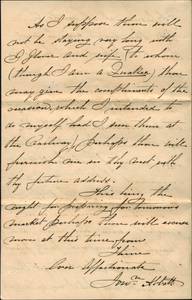 As I suppose thou will
not be staying very long with
J. Glover and wife to whom
(though I am a Quaker) thou
may give the compliments of the
season, which I intended to
do myself had I seen them at
the Railway, perhaps thou will
furnish me in thy next with
thy future address.
This being the
night for preparing for tomorrows
market perhaps thou will excuse
more at this time from
Thine
ever affectionate
Jonn. Abbott